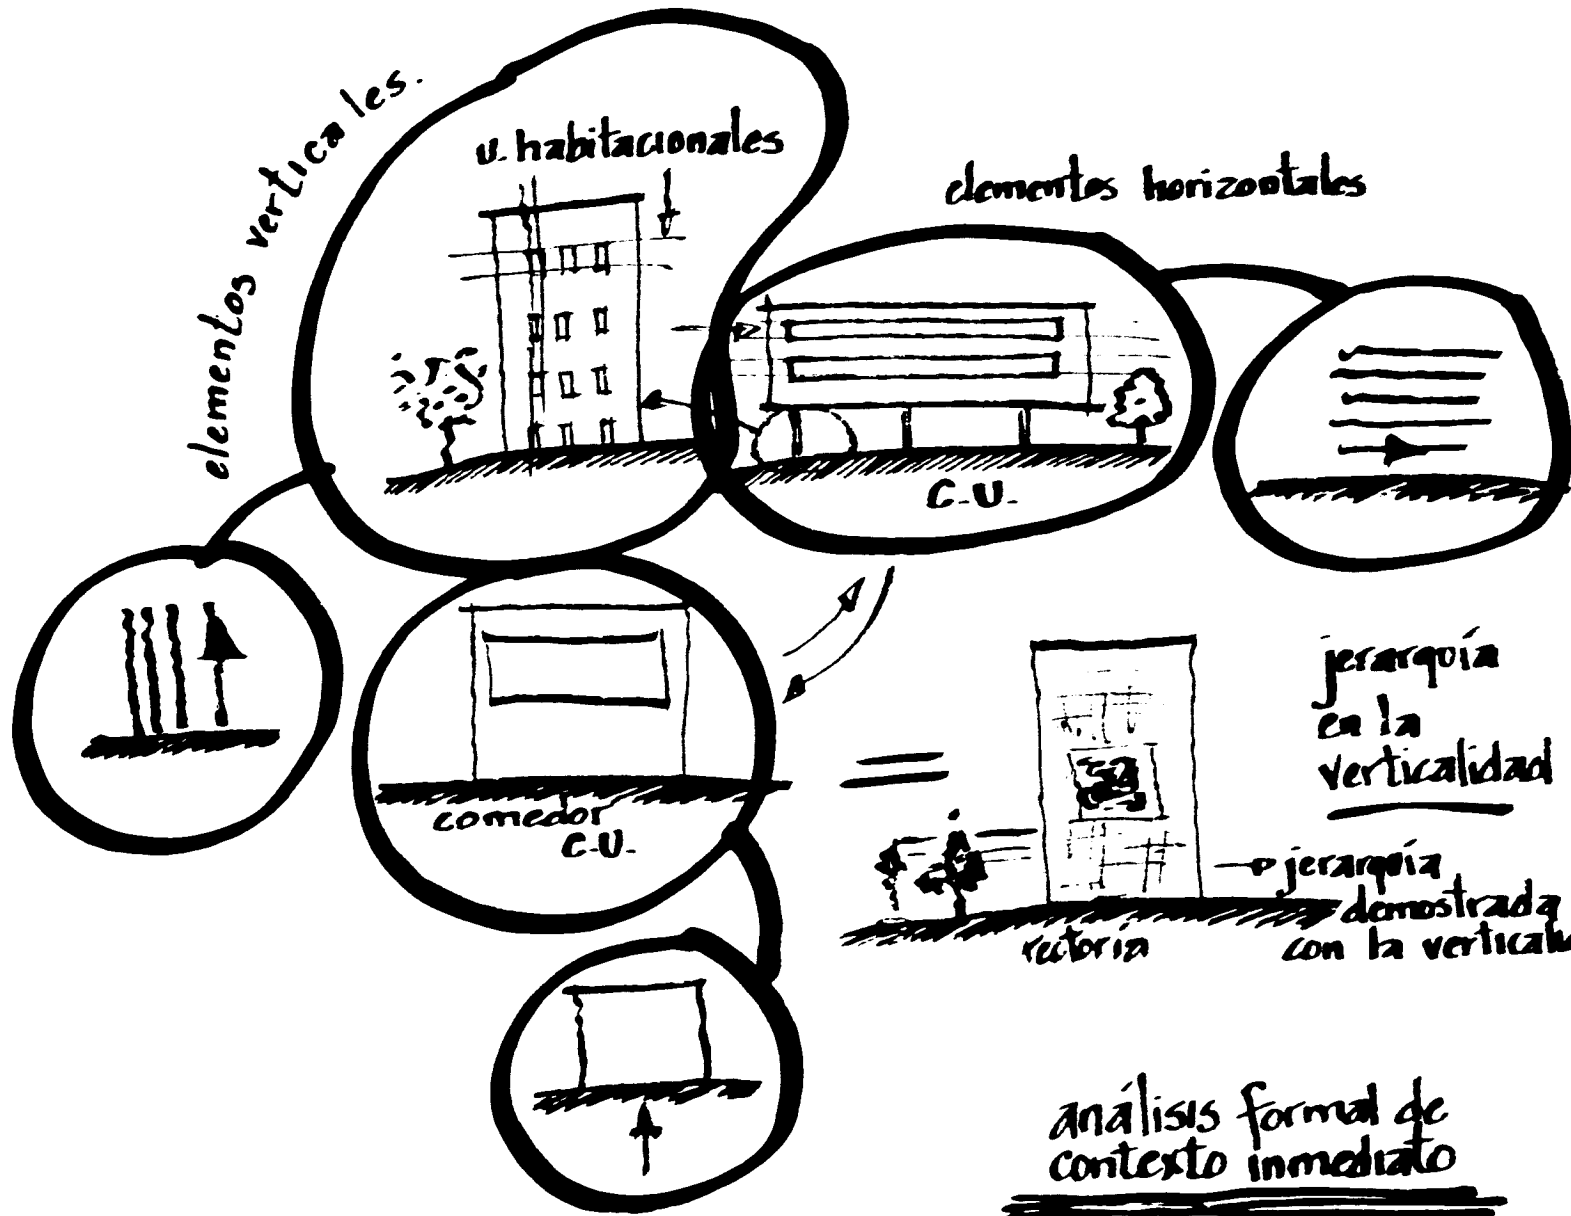 elementos verticales.
u. habitacionales
elementos horizontales
C.U.
comedor
C.U.
jerarquía
en la
verticalidad
jerarquía
demostrada
con la
rectoría
análisis formal de
contexto inmediato